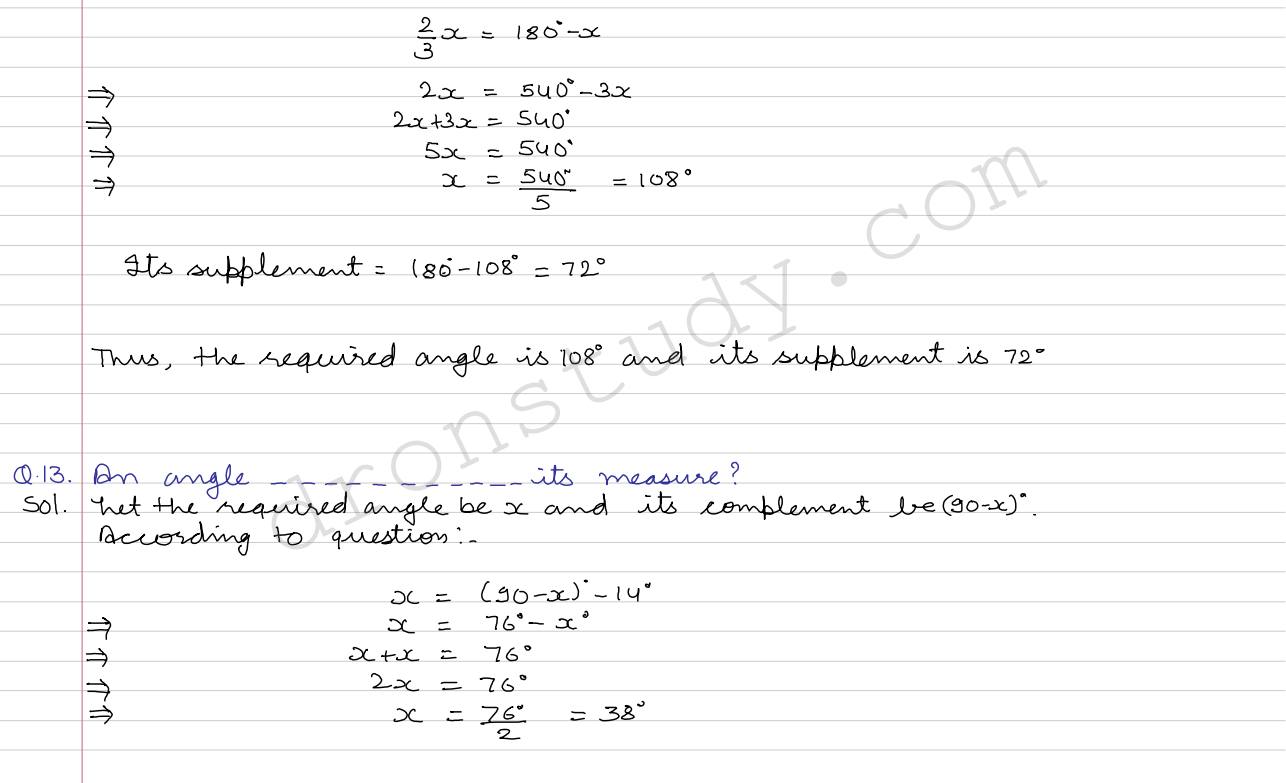 2/3 x = 180° - x
⇒ 2x = 540° - 3x
⇒ 2x+3x = 540°
⇒ 5x = 540°
⇒ x = 540°/5 = 108°
Its supplement = 180° - 108° = 72°
Thus, the required angle is 108° and its supplement is 72°
Q.13. An angle ____________ its measure?
Sol. Let the required angle be x and its complement be (90-x)°.
According to question:-
x = (90-x)° - 14°
⇒ x = 76° - x°
⇒ x+x = 76°
⇒ 2x = 76°
⇒ x = 76°/2 = 38°
dronstudy.com